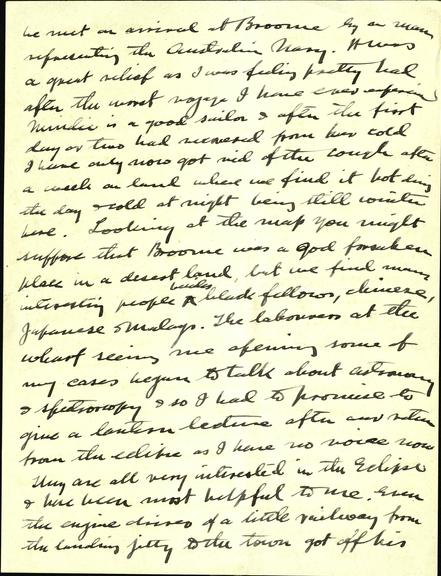 be met on arrival at Broome by a man
representing the Australian Navy. It was
a great relief as I was feeling pretty bad
after the worst voyage I have ever experienced
Minnie is a good sailor & after the first
day or two had recovered from her cold
I have only now got rid of the cough after
a week on land where we find it hot during
the day & cold at night being still winter
here. Looking at the map you might
suppose that Broome was a god forsaken
place in a desert land, but we find many
interesting people besides black fellows, chinese,
Japanese & Malays. The labourers at the
wharf seeing me opening some of
my cases began to talk about astronomy
& spectroscopy & so I had to promise to
give a lantern lecture after our return
from the eclipse as I have no voice now
They are all very interested in the Eclipse
& have been most helpful to me. Even
the engine driver of a little railway from
the landing jetty to the town got off his